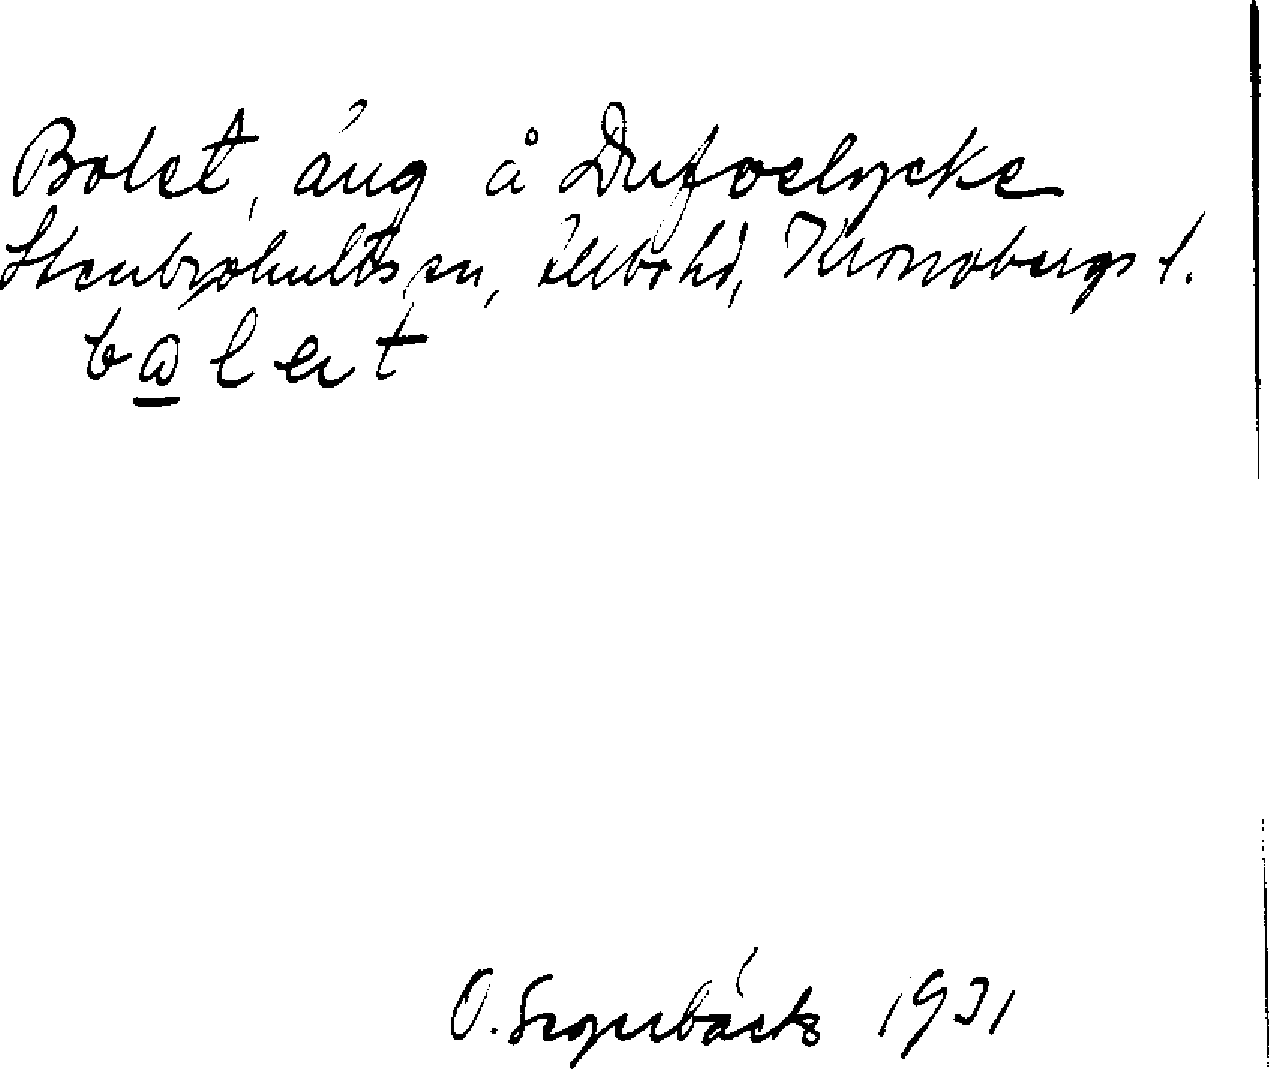 Bolet, äng å Dufvelycke
Stenbrohults sn, Allbo hd, Kronobergs l.
bωlet
O. 1931